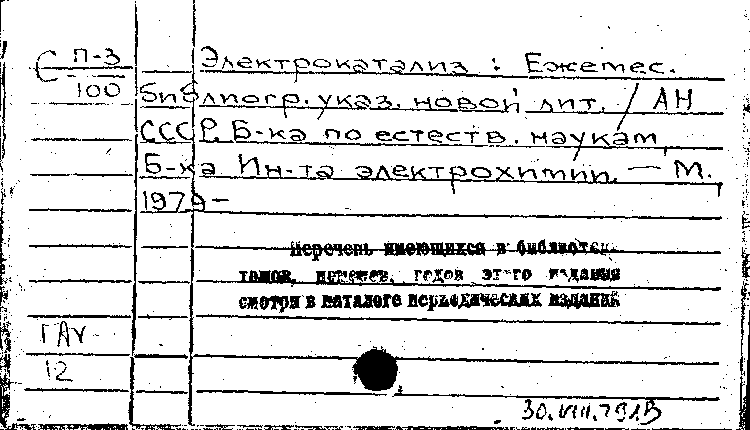 С П-3
100
Электрокатализ : Ежемес.
библиогр. указ. новой лит. / АН
СССР. Б-ка по естеств. наукам,
Б-ка Ин-та электрохимии. — М.,
1979–
Перечень имеющихся в библиотеке
томов, номеров, годов этого издания
смотри в каталоге периодических изданий
ГАУ
12
30.VIII.79